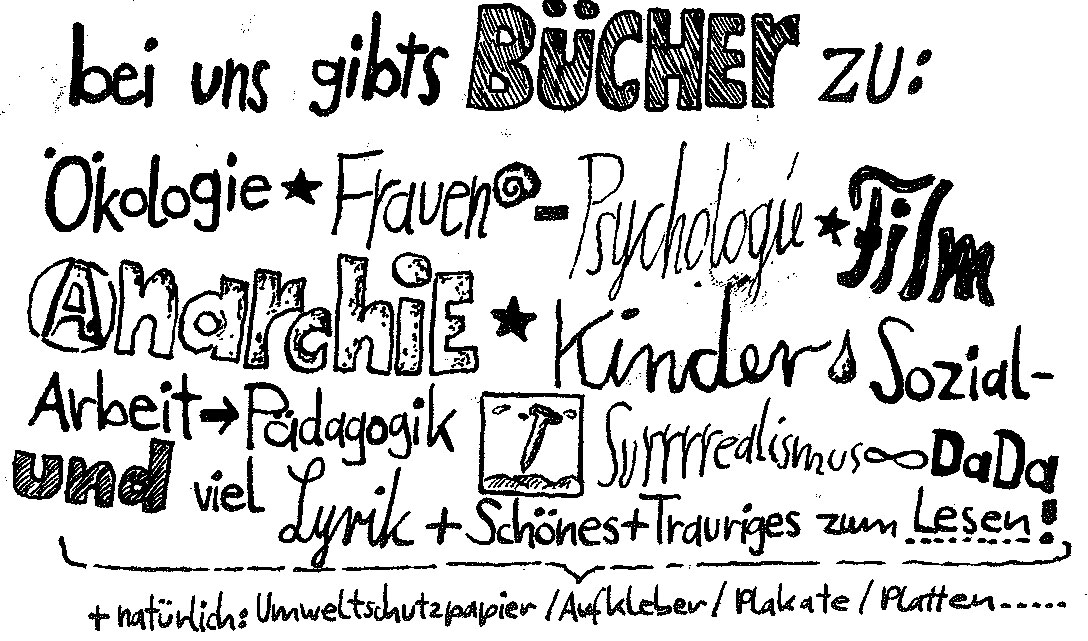 bei uns gibts BÜCHEr zu:
Ökologie ★ Frauen - Psychologie ★ Film
Anarchie ★ Kinder Sozial-
Arbeit → Pädagogik Surrrrrealismus ∞ DaDa
und viel Lyrik + Schönes + Trauriges zum Lesen!
+ natürlich: Umweltschutzpapier / Aufkleber / Plakate / Platten.....